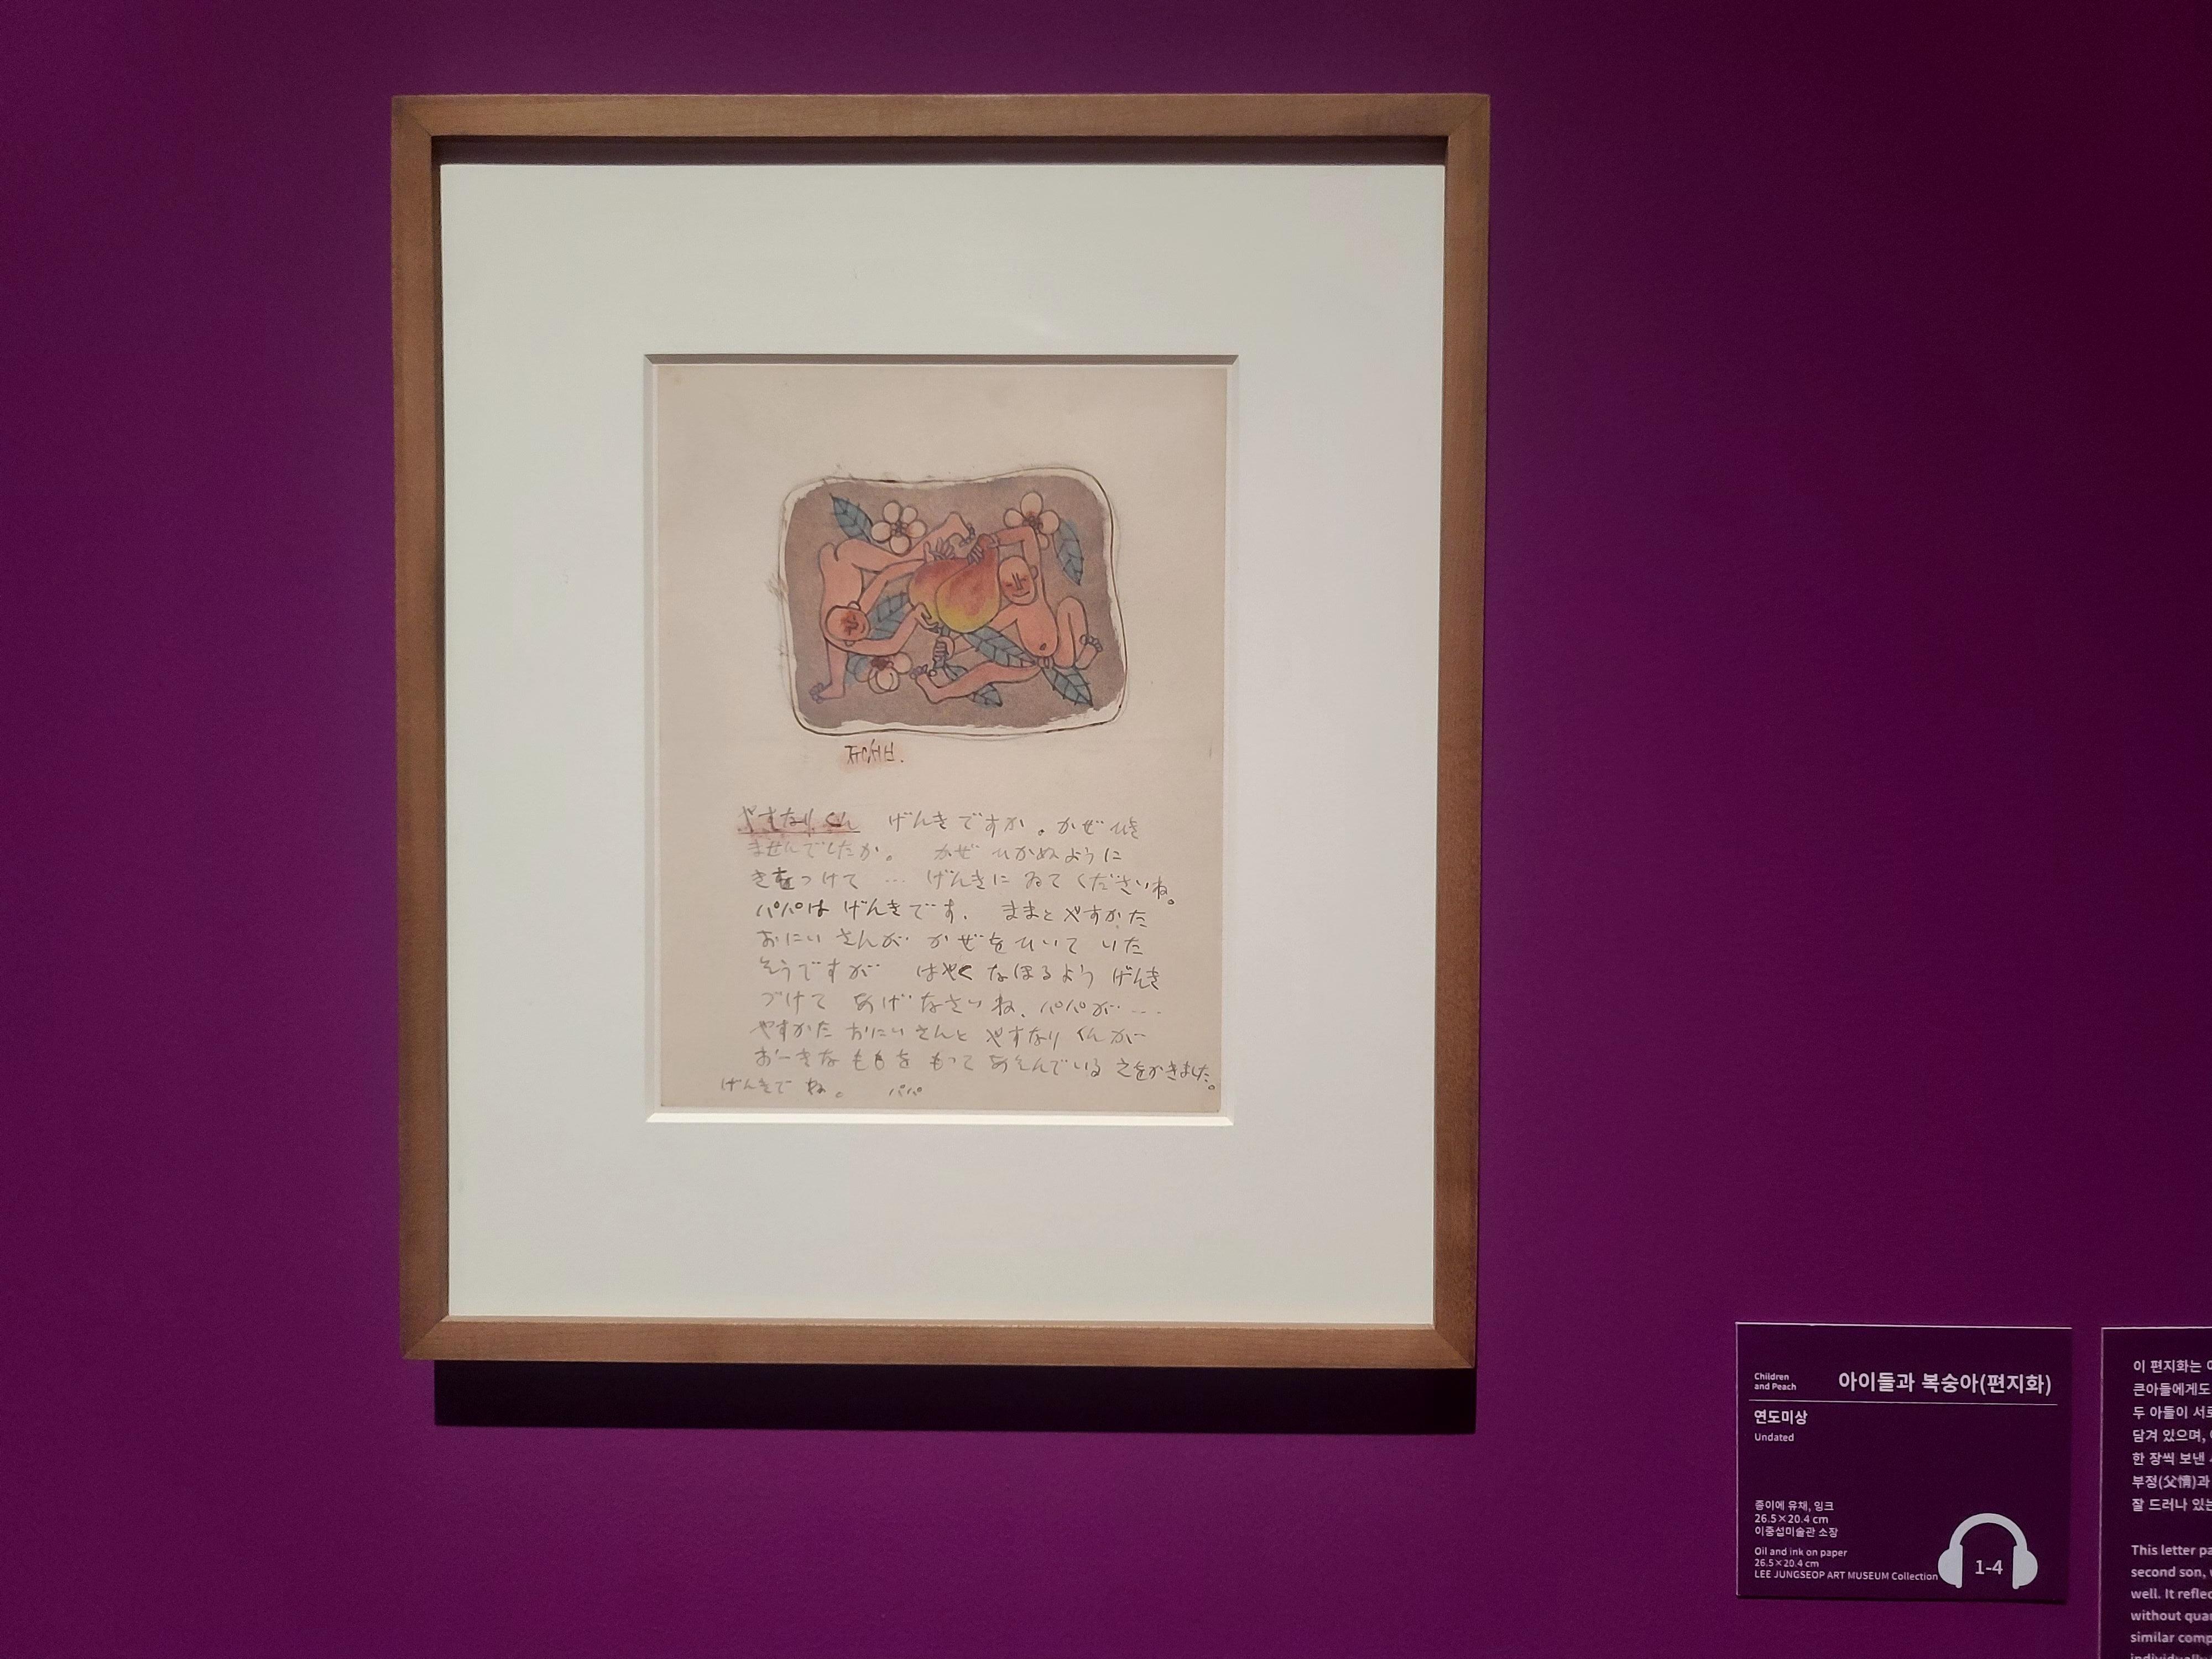 ㅈㅜㅇㅅㅓㅂ.
やすなりくん げんきですか。かぜひき
ませんでしたか。 かぜ ひかぬように
きをつけて … げんきに ゐて くださいね。
パパは げんきです. ままと やすかた
おにい さんが かぜをひいて いた
そうですが はやく なほるよう げんき
づけて あげなさいね. パパが…
やすかた おにいさんと やすなりくんが
おーきな ももを もって あそんでいる えをかきました。
げんきで ね。 パパ
Children
and Peach
아이들과 복숭아(편지화)
연도미상
Undated
종이에 유채, 잉크
26.5×20.4 cm
이중섭미술관 소장
Oil and ink on paper
26.5×20.4 cm
LEE JUNGSEOP ART MUSEUM Collection
1-4
이 편지화는
큰아들에게도
두 아들이 서로
담겨 있으며,
한 장씩 보낸
부정(父情)과
잘 드러나 있는
This letter pa
second son,
well. It reflec
without quar
similar comp